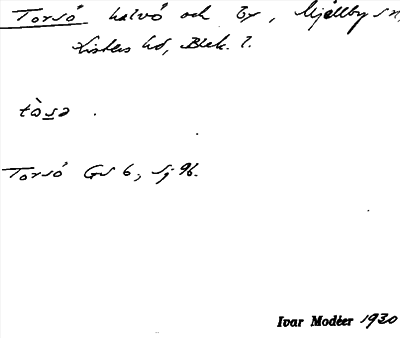 Torsö halvö och by, Mjällby sn,
Listers hd, Blek. l.
tòsa .
Torsö GS 6, Sj 96.
Ivar Modéer 1930